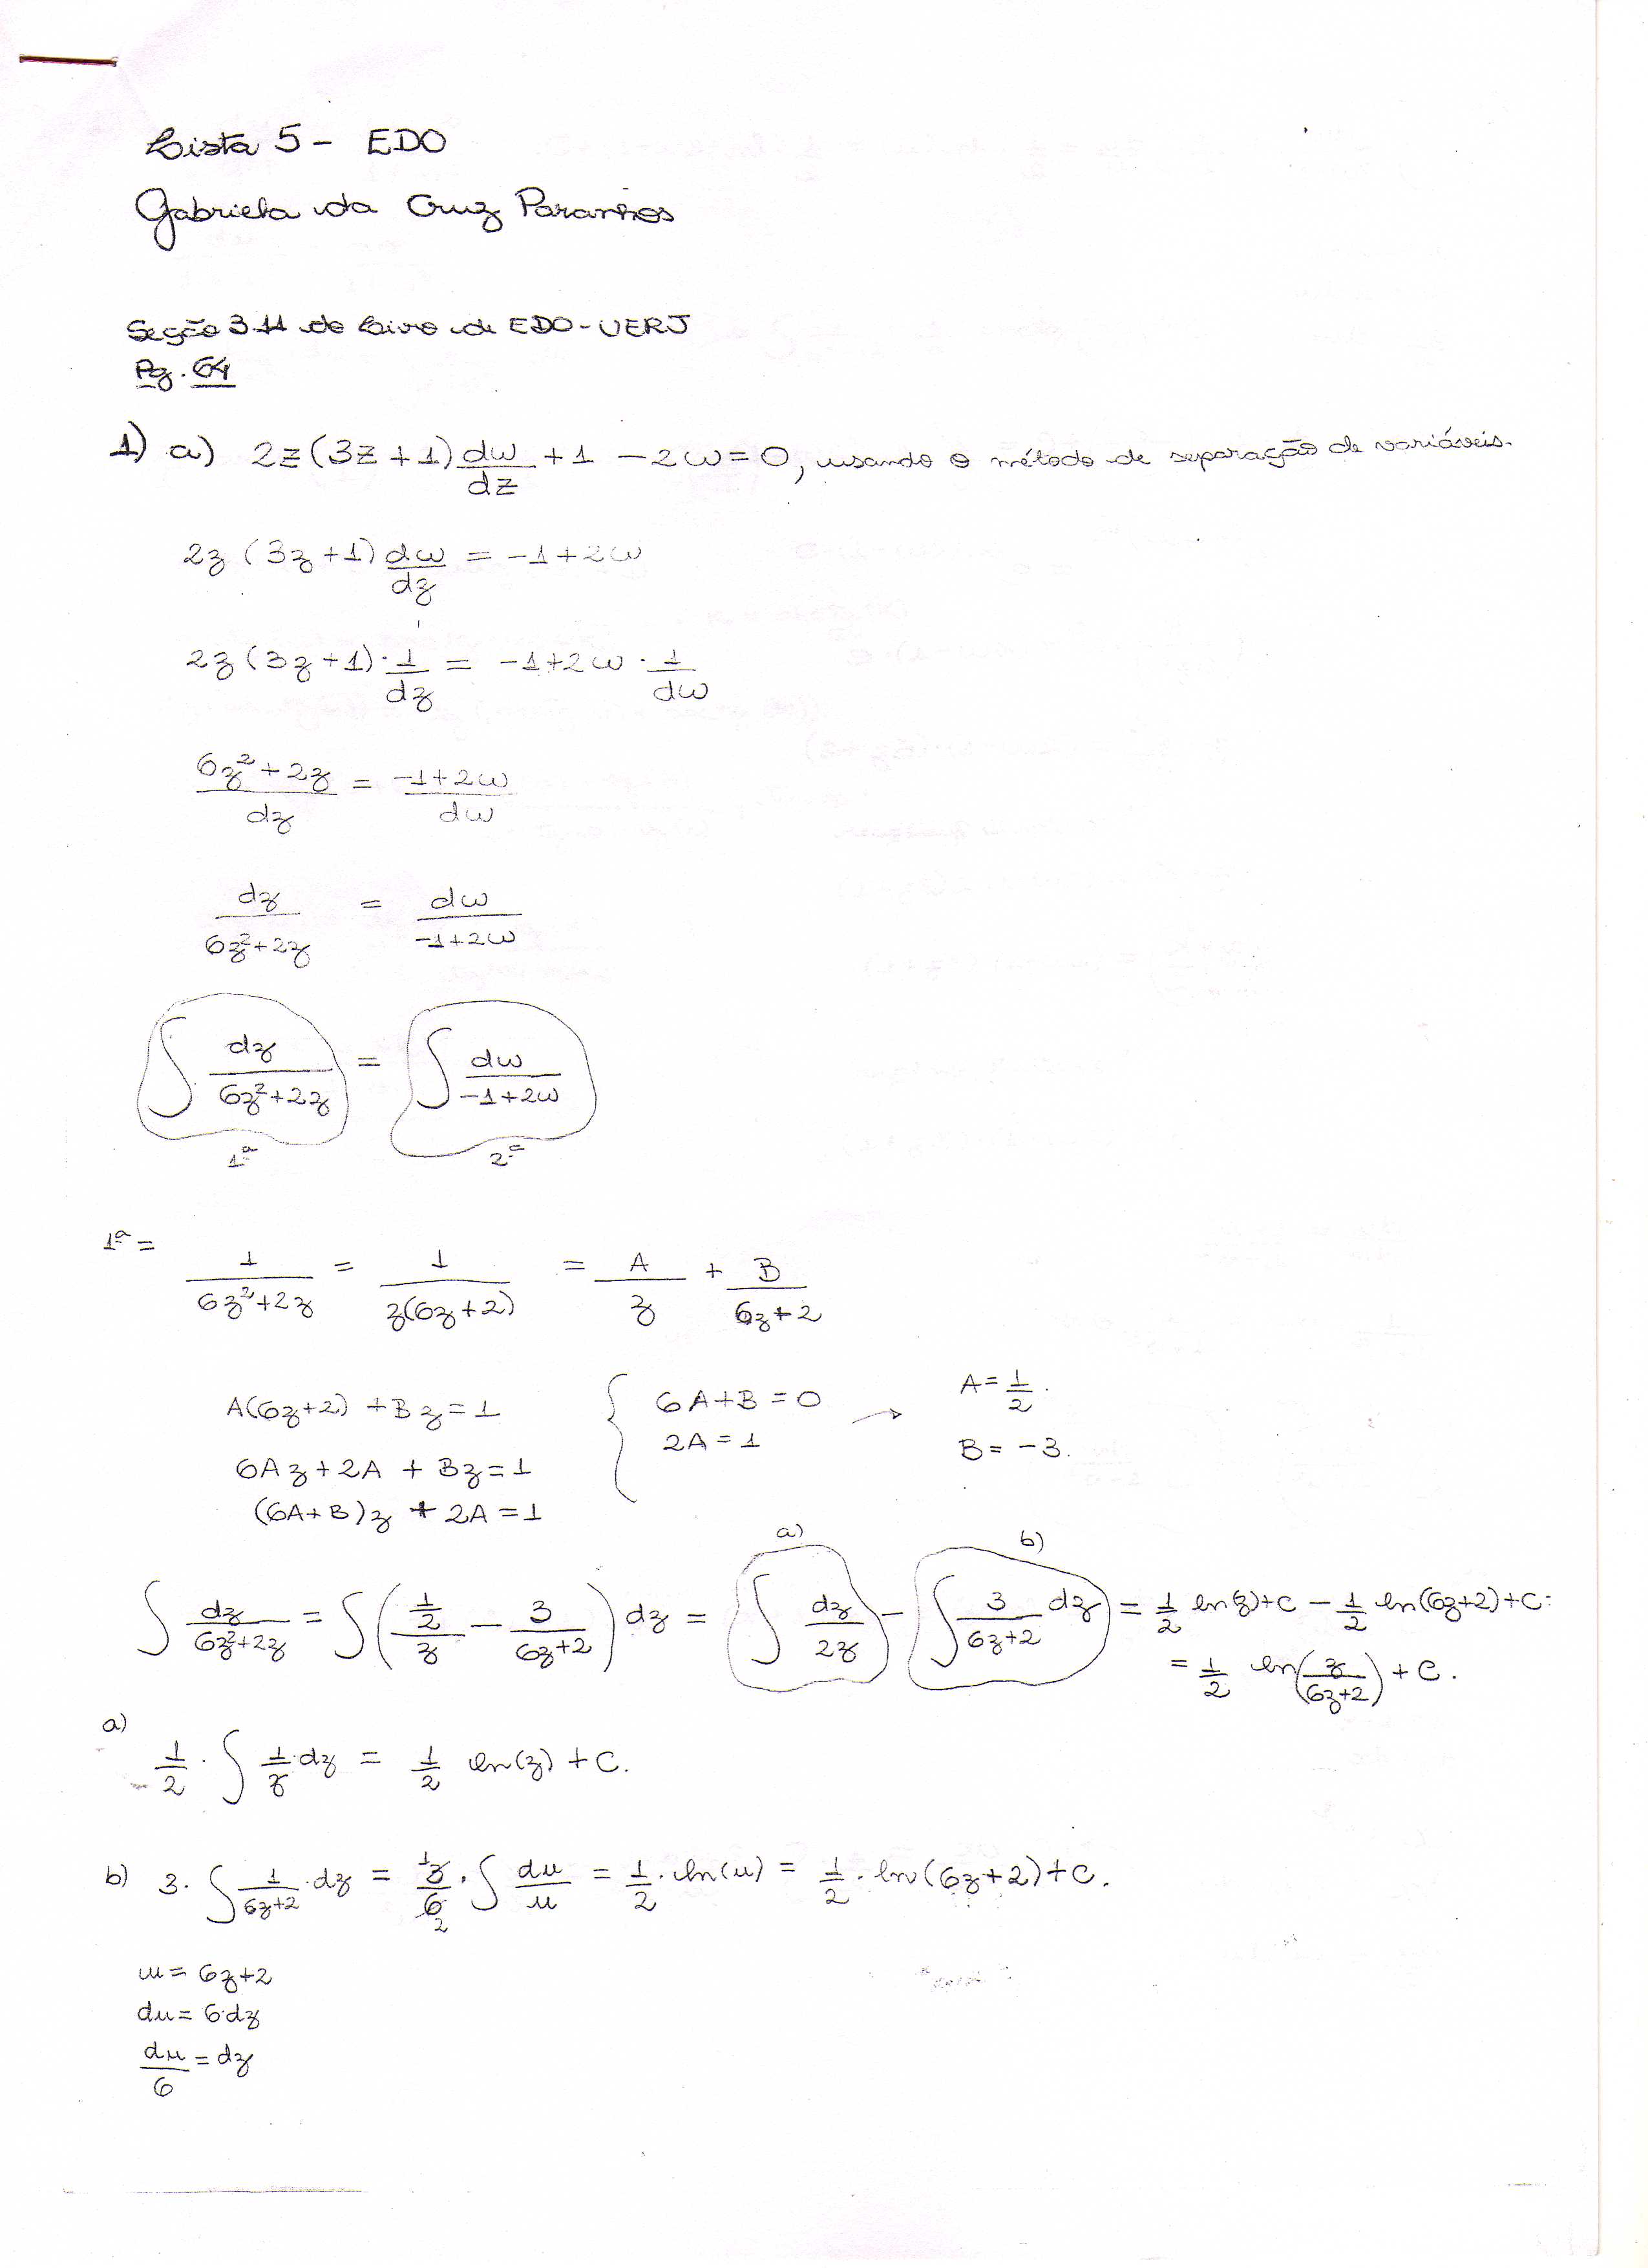 Lista 5 - EDO
Gabriela da Cruz Paranhos
Seção 3.11 do Livro de EDO-UERJ
Pg. 64
1) a) 2z(3z+1) dw/dz + 1 - 2w = 0, usando o método de separação de variáveis.
2z(3z+1) dw/dz = -1+2w
2z(3z+1) · 1/dz = -1+2w · 1/dw
(6z²+2z)/dz = (-1+2w)/dw
dz/(6z²+2z) = dw/(-1+2w)
∫ dz/(6z²+2z) = ∫ dw/(-1+2w)
1ª 2ª
1ª = 1/(6z²+2z) = 1/(z(6z+2)) = A/z + B/(6z+2)
A(6z+2) + Bz = 1 { 6A+B = 0 → A = 1/2.
6Az + 2A + Bz = 1 2A = 1 B = -3.
(6A+B)z + 2A = 1
a) b)
∫ dz/(6z²+2z) = ∫ ((1/2)/z - 3/(6z+2)) dz = ∫ dz/2z - ∫ 3/(6z+2) dz = 1/2 ln(z)+C - 1/2 ln(6z+2)+C =
= 1/2 ln(z/(6z+2)) + C.
a)
1/2 · ∫ 1/z · dz = 1/2 ln(z) + C.
b) 3 · ∫ 1/(6z+2) · dz = 3/6 · ∫ du/u = 1/2 · ln(u) = 1/2 · ln(6z+2) + C.
1
2
u = 6z+2
du = 6·dz
du/6 = dz